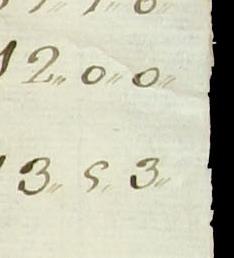 12〃 0〃 0〃
13〃 5〃 3〃